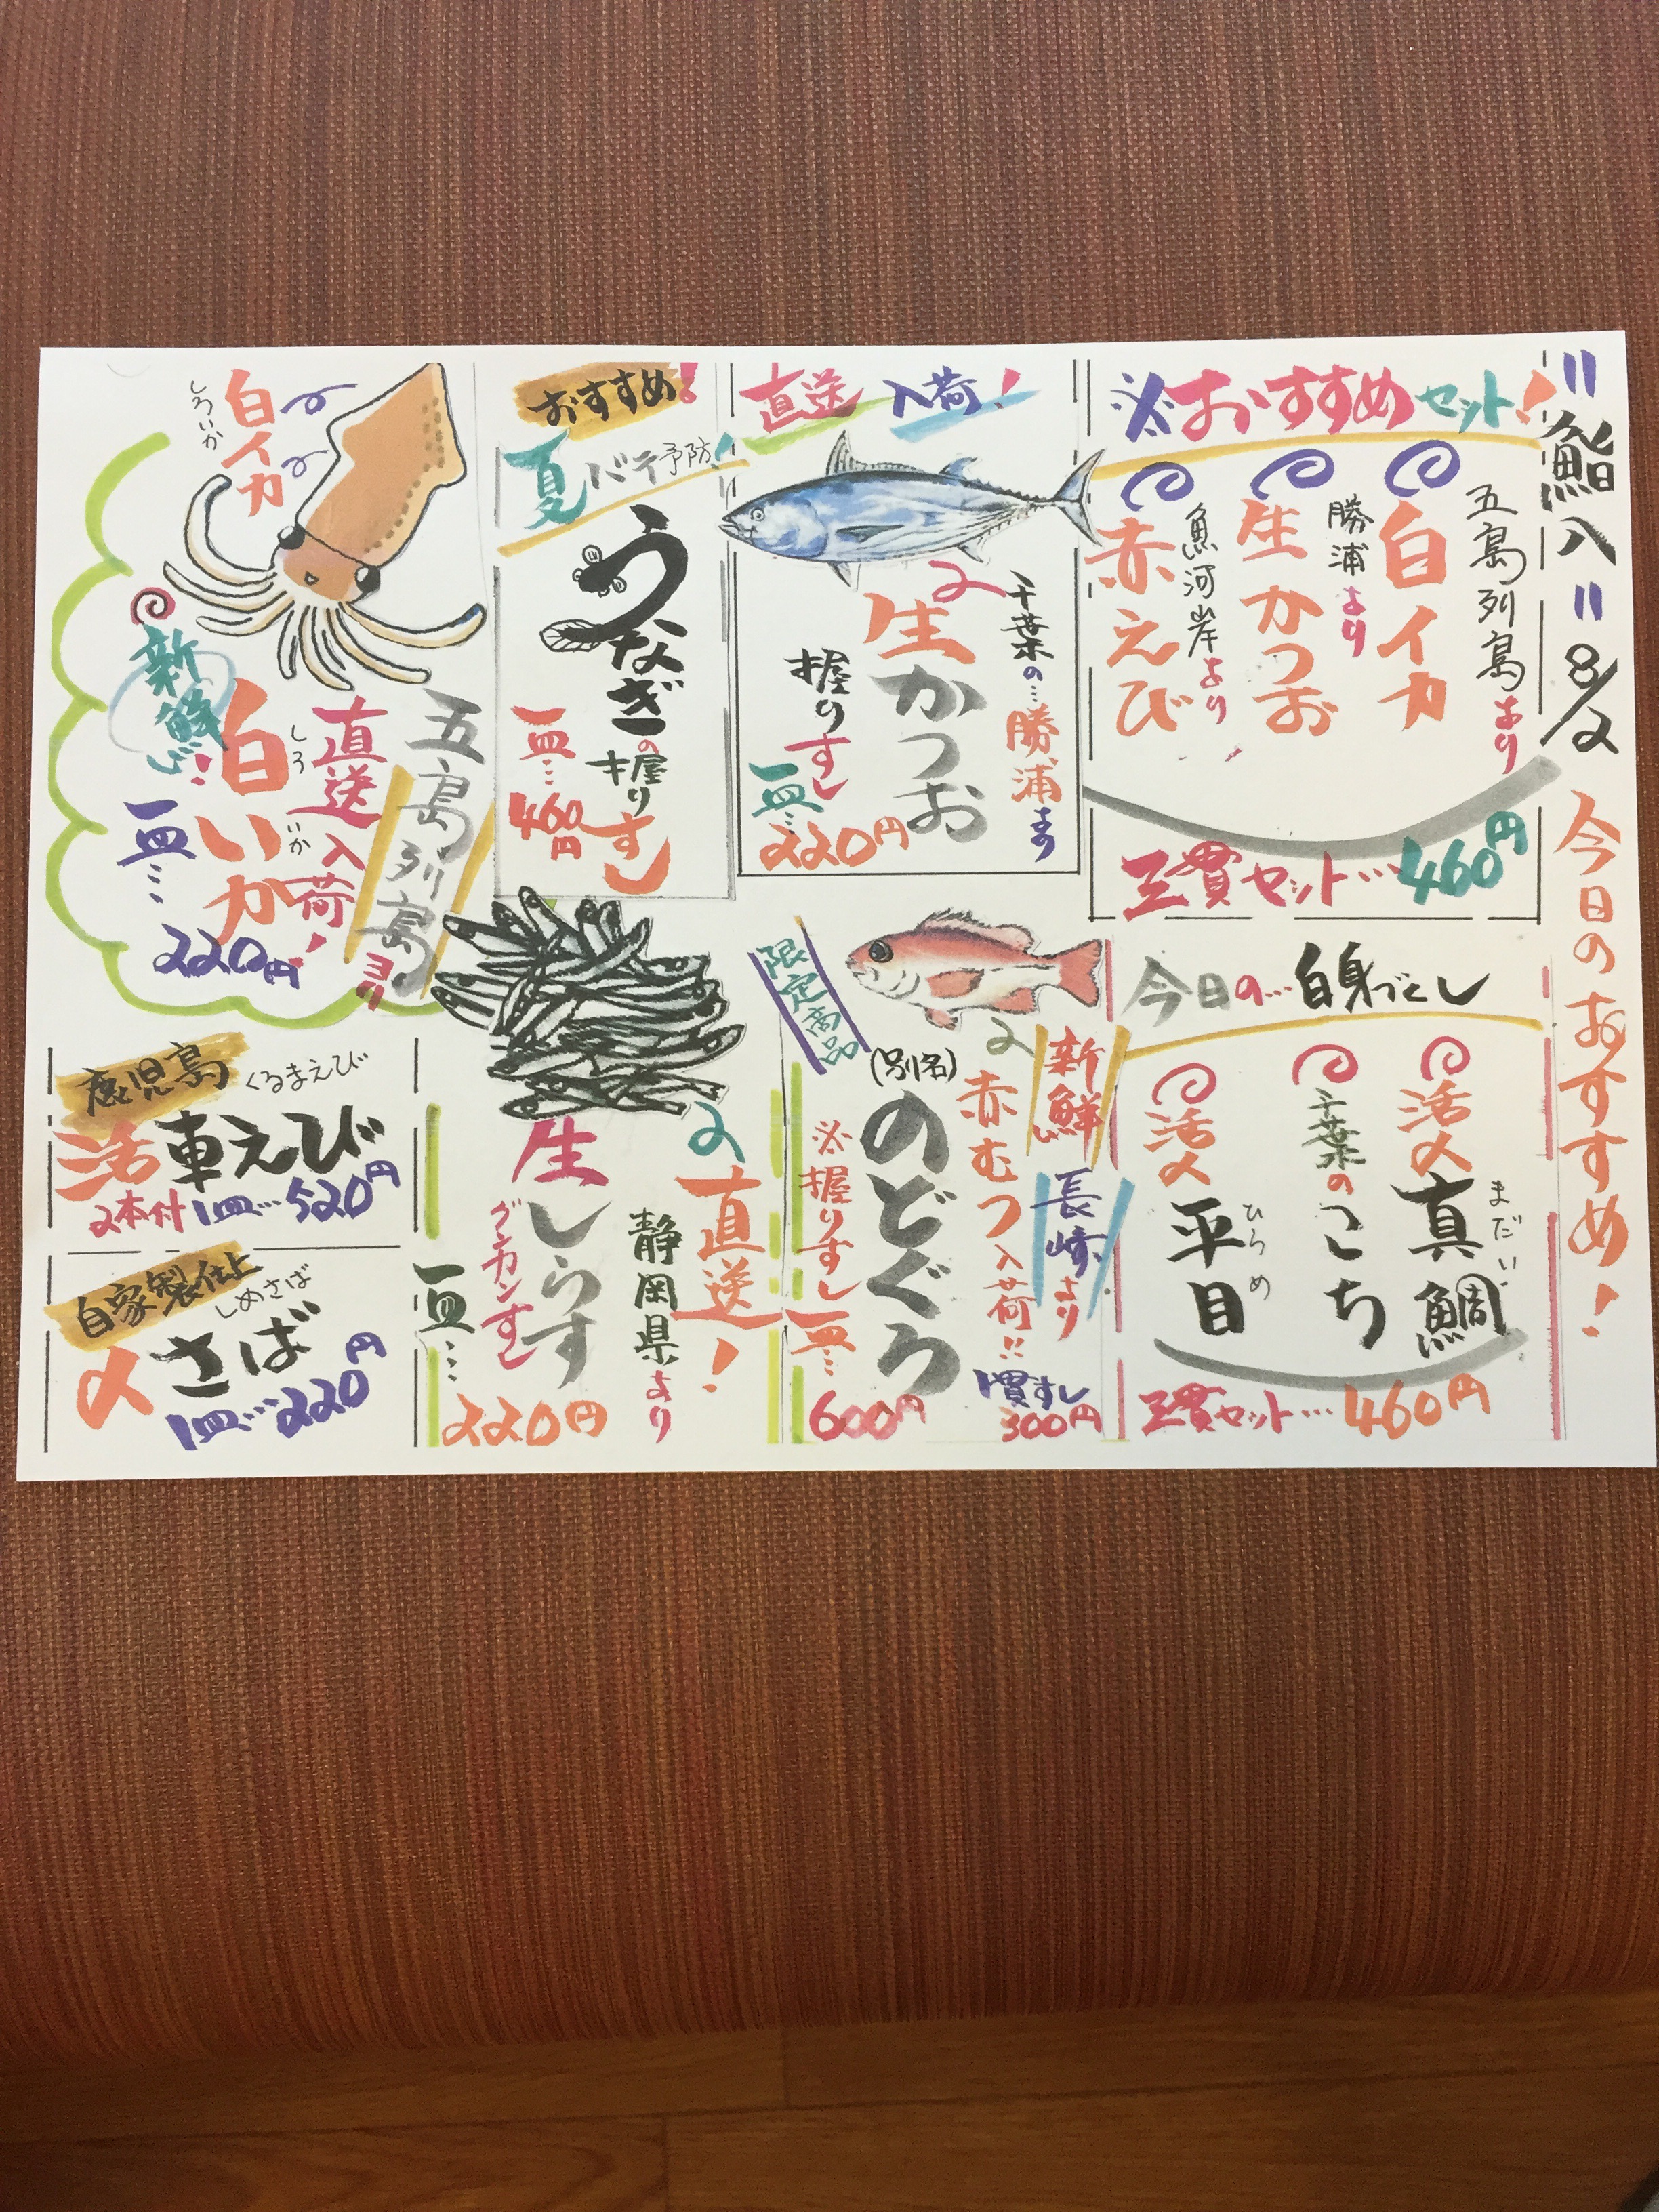 〃鮨八〃 8/2 今日のおすすめ!
※おすすめセット!
五島列島より
白イカ
勝浦より
生かつお
魚河岸より
赤えび
三貫セット…460円
直送入荷!
千葉の…勝浦より
生かつお
握りすし
一皿…
220円
おすすめ!
夏バテ予防!
うなぎの
握りすし
一皿…
460円
しろいか
白イカ
五島列島ヨリ
直送入荷!
しろ いか
白いか
新鮮!
一皿…
220円
今日の…白身づくし
活〆
まだい
真鯛
千葉の
こち
活〆
ひらめ
平目
三貫セット…460円
限定商品
新鮮
長崎より
赤むつ入荷!!
(別名)
のどぐろ
※握りすし一皿…
600円
1貫すし
300円
直送!
静岡県より
生しらす
グンカンすし
一皿…
220円
鹿児島
くるまえび
活車えび
2本付 1皿…520円
自家製仕上
しめさば
〆さば
1皿…220円